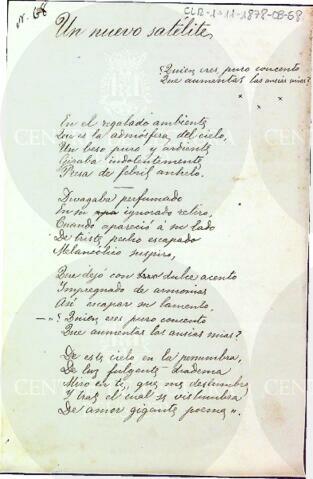 nº 68
CLR-1-11-1878-08-68
Un nuevo satélite
¿Quien eres puro concento
Que aumentas las ansias mias?
x x x
En el regalado ambiente
Que es la admósfera del cielo,
Un beso puro y ardiente
Giraba indolentemente,
Presa de febril anhelo.
Divagaba perfumado
En su ignorado retiro,
Cuando apareció á su lado
De triste pecho escapado
Melancólico suspiro,
Que dejó con dulce acento
Impregnado de armonias
Asi escapar su lamento,
—"¿Quien eres puro concento
Que aumentas las ansias mias?
De este cielo en la penumbra,
De luz fulgente diadema
Miro en ti, que me deslumbra
Y tras el cual se vislumbra
De amor gigante poema".